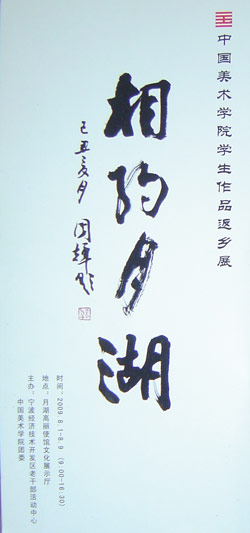 中国美术学院学生作品返乡展
相约月湖
己丑夏月
时间：2009.8.1-8.9 (9:00-16:30)
地点：月湖高丽使馆文化展示厅
主办：宁波经济技术开发区老干部活动中心
中国美术学院团委